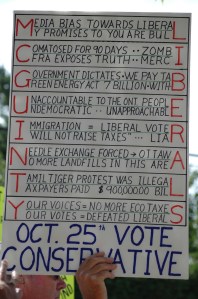 MCGUINTY
EDIA BIAS TOWARDS LIBERA
Y PROMISES TO YOU ARE BUL
OMATOSED FOR 90 DAYS .. ZOMB
FRA EXPOSES TRUTH .. MERC
OVERNMENT DICTATES - WE PAY TA
REEN ENERGY ACT 7 BILLION - WITH
NACCOUNTABLE TO THE ONT PEOPL
NDEMOCRATIC .. UNAPPROACHABL
MMIGRATION = LIBERAL VOTE
WILL NOT RAISE TAXES ... LIA
EEDLE EXCHANGE FORCED → OTTAW
O MORE LANDFILLS IN THIS ARE
AMIL TIGER PROTEST WAS ILLEGA
AXPAYERS PAID $900,000.00 BIL
OUR VOICES = NO MORE ECO TAXE
OUR VOTES = DEFEATED LIBERAL
LIBERALS
OCT. 25TH VOTE
CONSERVATIVE